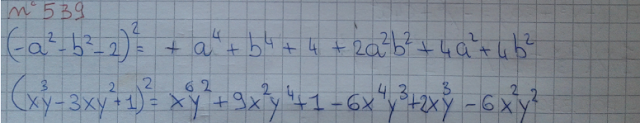 n° 539
(-a² - b² - 2)² = + a⁴ + b⁴ + 4 + 2a²b² + 4a² + 4b²
(x³y - 3xy² + 1)² = x⁶y² + 9x²y⁴ + 1 - 6x⁴y³ + 2x³y - 6x²y²